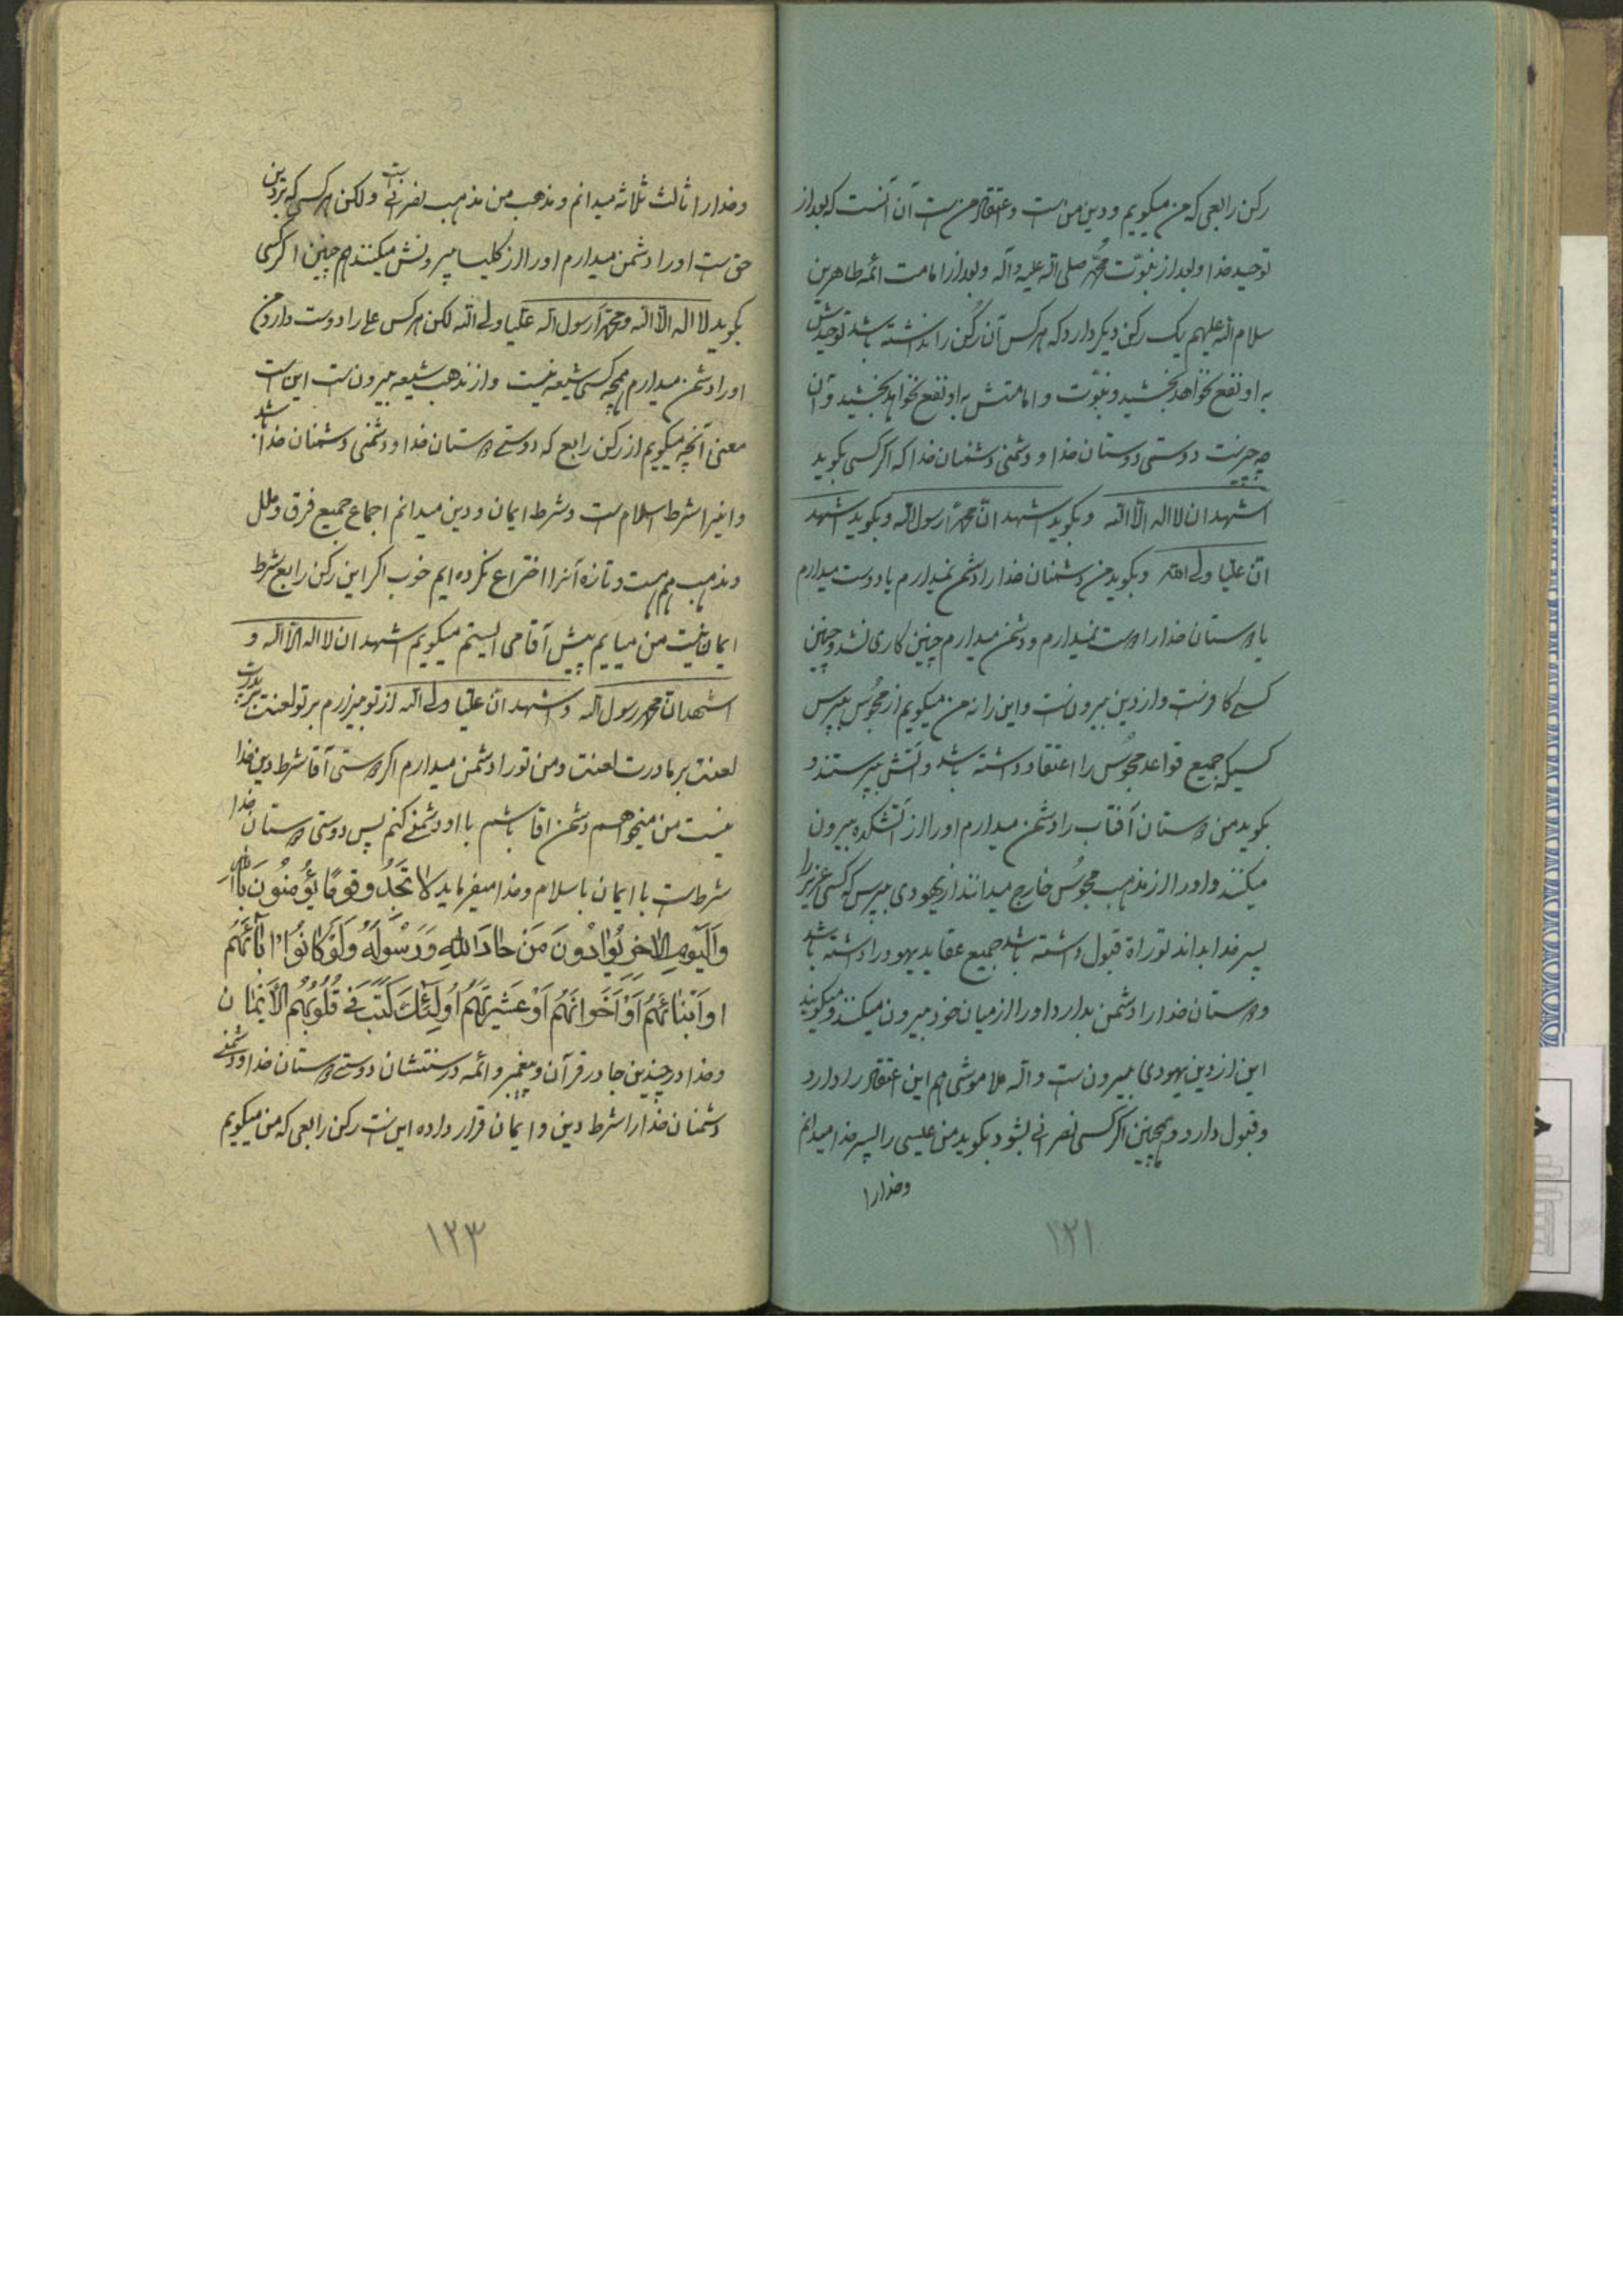 رکن رابعی که من میگویم و دین من است و اعتقاد من است آن آنست که بعد از
توحید خدا و بعد از نبوّت محمّد صلی الله علیه و آله و بعد از امامت ائمه طاهرین
سلام الله علیهم یک رکن دیگر دارد که هر کس آن رکن را نداشته باشد توحیدش
به او نفع نخواهد بخشید و نبوّت و امامتش به او نفع نخواهد بخشید و آن
چه چیز است دوستی دوستان خدا و دشمنی دشمنان خدا که اگر کسی بگوید
اشهد ان لا اله الّا الله و بگوید اشهد انّ محمّداً رسول الله و بگوید اشهد
انّ علیّا ولی الله و بگوید من دشمنان خدا را دشمن نمیدارم یا دوست میدارم
یا دوستان خدا را دوست نمیدارم و دشمن میدارم چنین کاری نشد و چنین
کسی کافر است و از دین بیرون است و این را نه من میگویم از مجوس بپرس
کسیکه جمیع قواعد مجوس را اعتقاد داشته باشد و آتش بپرستد و
بگوید من دوستان آفتاب را دشمن میدارم او را از آتشکده بیرون
میکنند و او را از مذهب مجوس خارج میدانند از یهودی بپرس که کسی عزیز را
پسر خدا بداند توراة قبول داشته باشد جمیع عقاید یهود را داشته باشد
و دوستان خدا را دشمن بدارد او را از میان خود بیرون میکنند و میگویند
این از دین یهودی بیرون است و الله ملا موشی هم این اعتقاد را دارد
و قبول دارد و همچنین اگر کسی نصرانی بشود بگوید من عیسی را پسر خدا میدانم
و خدا را
۱۲۱
و خدا را ثالث ثلاثه میدانم و مذهب من مذهب نصرانی است ولکن هر کسی که بر دین
حق است او را دشمن میدارم او را از کلیسا بیرونش میکنند هم چنین اگر کسی
بگوید لا اله الّا الله و محمّداً رسول الله علیّا ولی الله لکن هر کس علی را دوست دارد من
او را دشمن میدارم همچه کسی شیعه نیست و از مذهب شیعه بیرون است این است
معنی آنچه میگویم از رکن رابع که دوستی دوستان خدا و دشمنی دشمنان خدا باشد
و اینرا شرط اسلام است و شرط ایمان و دین میدانم اجماع جمیع فرق و ملل
و مذهب هم هست و تازه آنرا اختراع نکرده‌ایم خوب اگر این رکن رابع شرط
ایمان نیست من میایم پیش آقا می ایستم میگویم اشهد ان لا اله الّا الله و
اشهد انّ محمّد رسول الله و اشهد انّ علیّا ولی الله از تو بیزارم بر تو لعنت بر پدرت
لعنت بر مادرت لعنت و من تو را دشمن میدارم اگر دوستی آقا شرط دین خدا
نیست من میخواهم دشمن آقا باشم با او دشمنی کنم پس دوستی دوستان خدا
شرط است با ایمان با اسلام و خدا میفرماید لا تَجِدُ قوماً یُؤمِنُونَ بِاللهِ
وَالْیَوْمِ الاخِرِ یُوادُّونَ مَنْ حادَّ اللهَ وَرَسُولَهُ وَلَوْ کانُوا ابائَهُمْ
اَوْ اَبْنائَهُمْ اَوْ اَخْوانَهُمْ اَوْ عَشیرَتَهُمْ اُولئِکَ کَتَبَ فی قُلُوبِهِمُ الْاِیمانَ
و خدا در چندین جا در قرآن و پیغمبر و ائمه در سنتشان دوستی دوستان خدا و دشمنی
دشمنان خدا را شرط دین و ایمان قرار داده این است رکن رابعی که من میگویم
۱۲۳